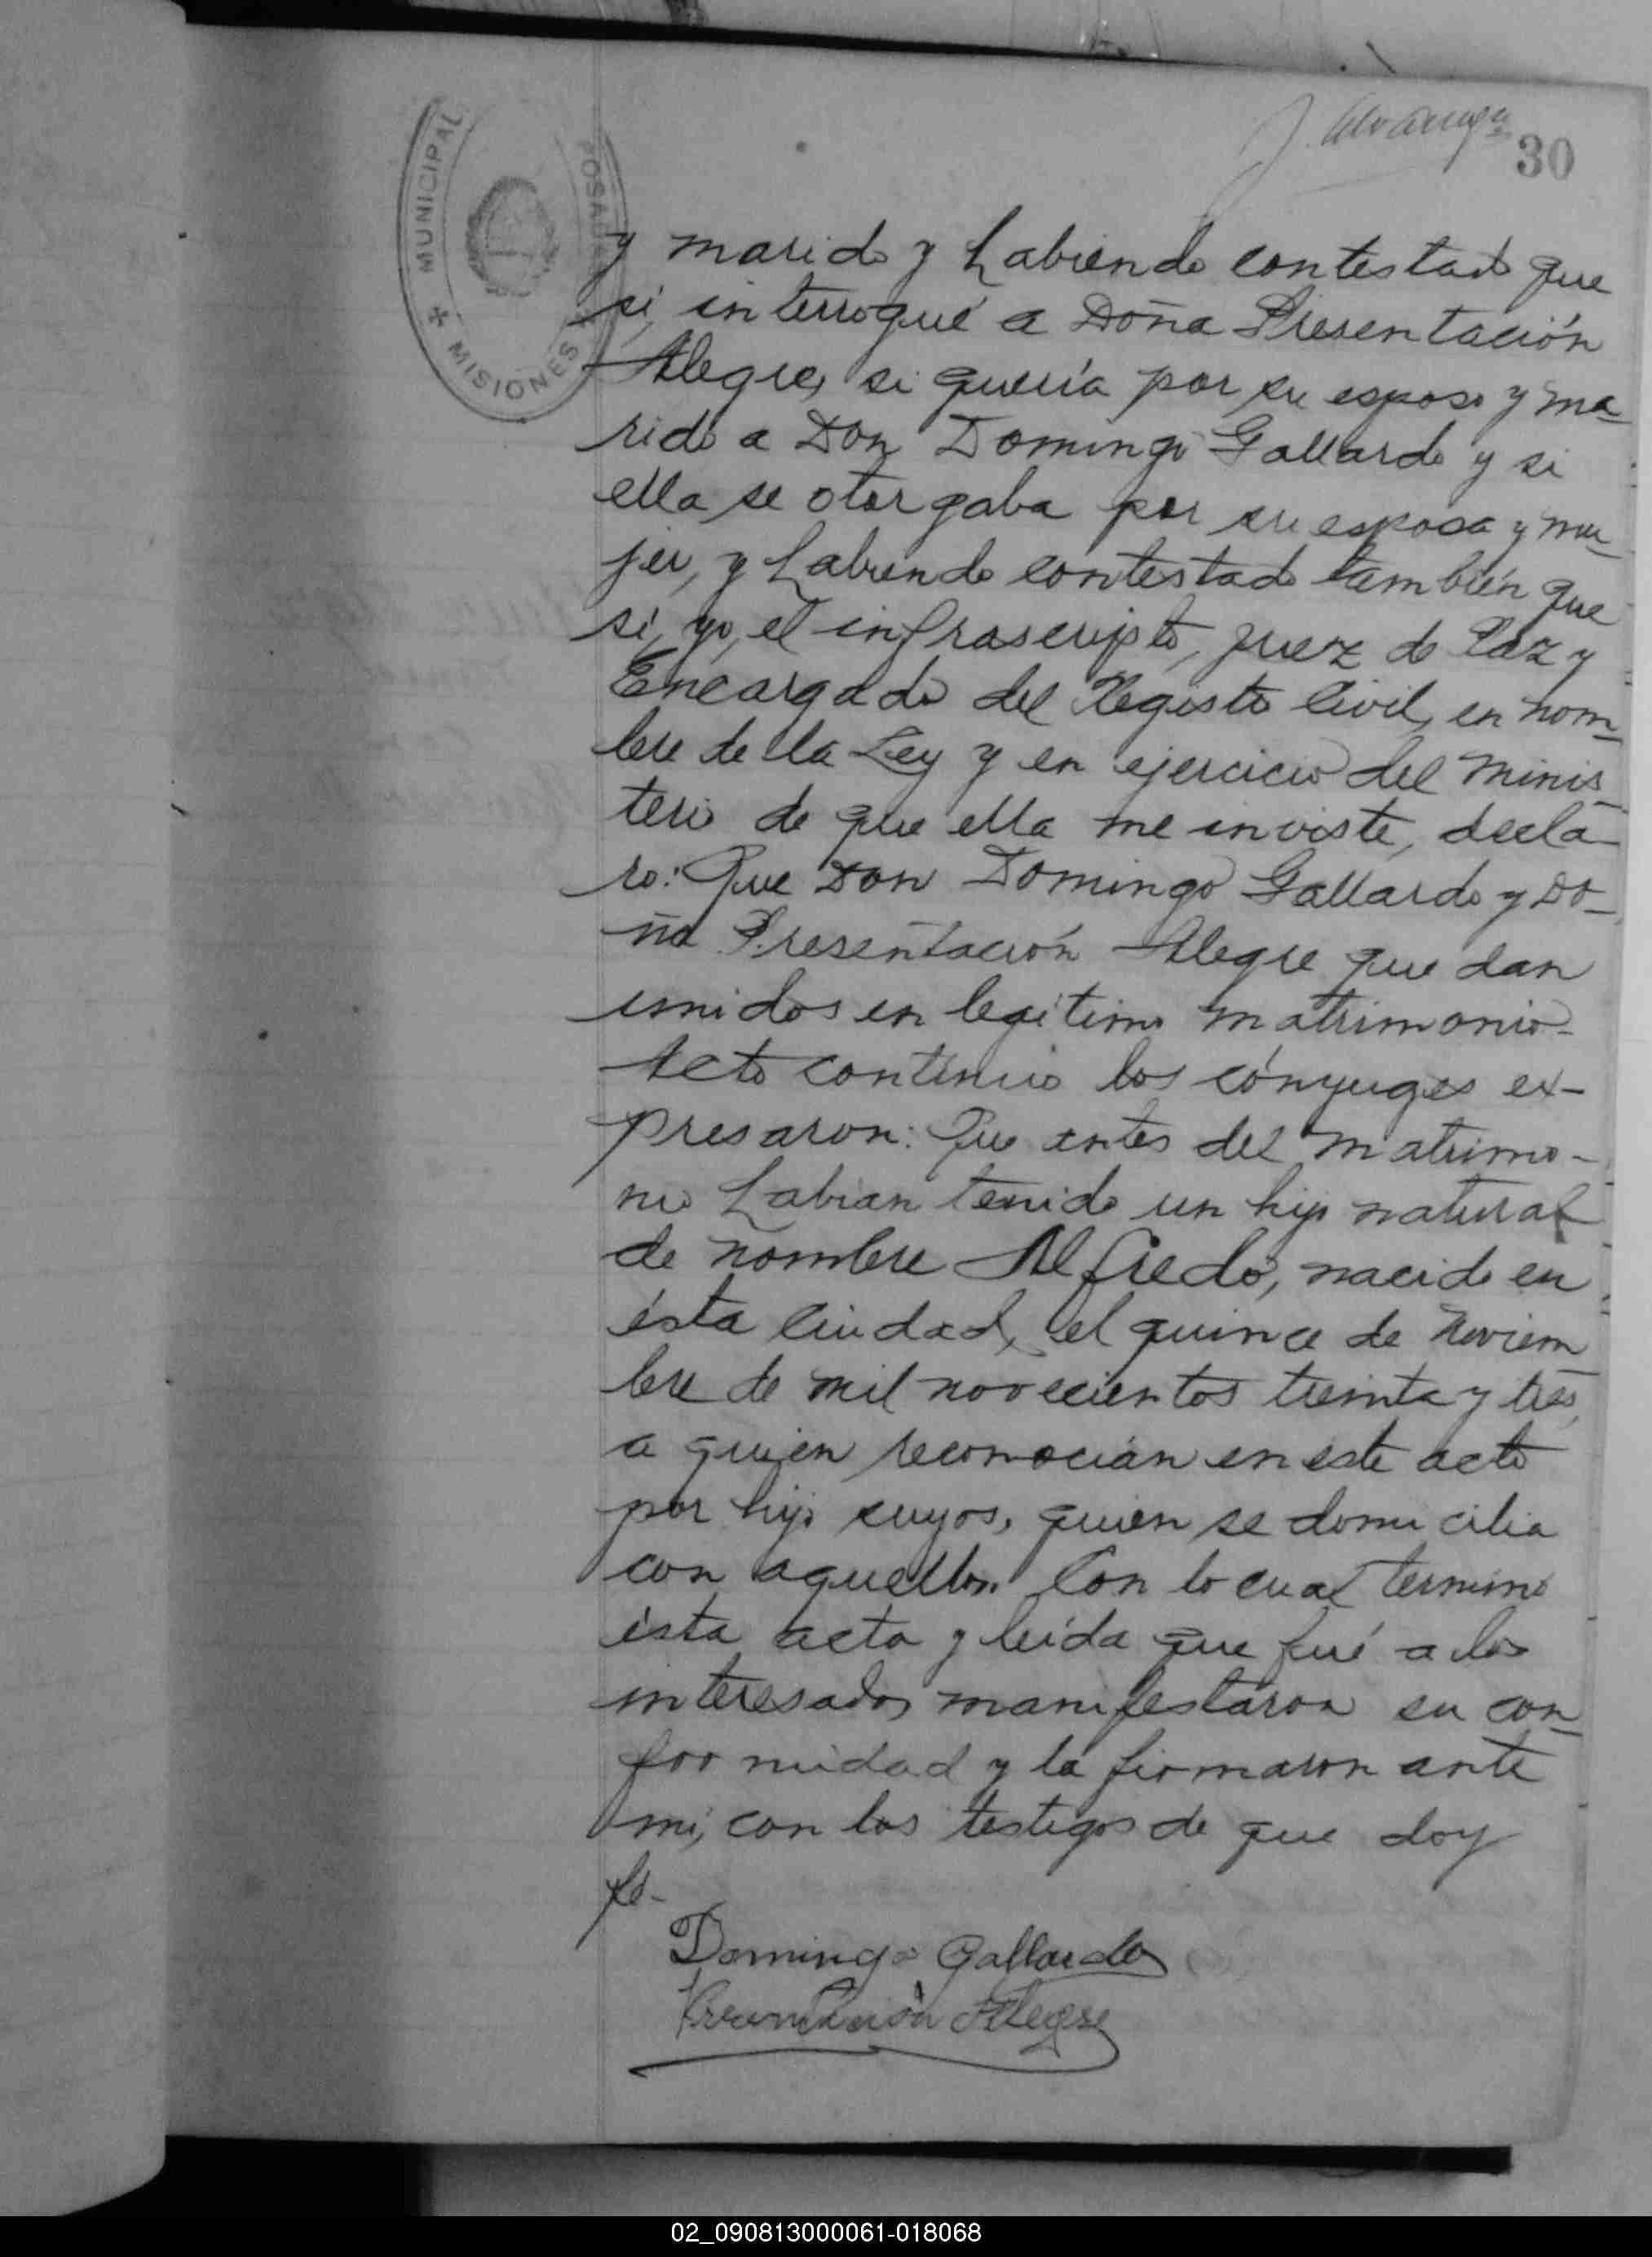 30
MUNICIPAL
POSADAS
MISIONES
y marido y habiendo contestado que
si, interrogué a Doña Presentación
Alegre, si quería por su esposo y ma-
rido a Don Domingo Gallardo y si
ella se otorgaba por su esposa y mu-
jer, y habiendo contestado también que
si, yo, el infrascripto, juez de Paz y
Encargado del Registro Civil, en nom-
bre de la Ley y en ejercicio del minis-
terio de que ella me inviste, decla-
ro: Que Don Domingo Gallardo y Do-
ña Presentación Alegre que dan
unidos en legítimo matrimonio-
Acto continuo los cónyuges ex-
presaron: Que antes del matrimo-
nio habian tenido un hijo natural
de nombre Alfredo, nacido en
ésta ciudad, el quince de Noviem
bre de mil novecientos treinta y tres,
a quien reconocian en este acto
por hijo suyos, quien se domicilia
con aquellos. Con lo cual terminó
ésta acta y leída que fué a los
interesados manifestaron su con-
formidad y la firmaron ante
mi, con los testigos de que doy
fé-
Domingo Gallardo
Presentación Alegre
02_090813000061-018068